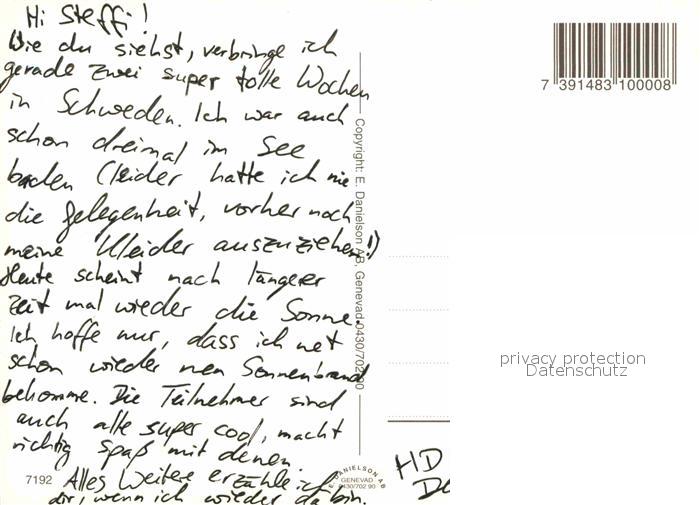 Hi Steffi!
Wie du siehst, verbringe ich
gerade zwei super tolle Wochen
in Schweden. Ich war auch
schon dreimal im See
baden (leider hatte ich nie
die Gelegenheit, vorher noch
meine Kleider auszuziehen!)
Heute scheint nach längerer
Zeit mal wieder die Sonne.
Ich hoffe nur, dass ich net
schon wieder nen Sonnenbrand
bekomme. Die Teilnehmer sind
auch alle super cool, macht
richtig Spaß mit denen.
Alles Weitere erzähle ich
dir, wenn ich wieder da bin.
7192
Copyright: E. Danielson AB, Genevad 0430/702 90
E. DANIELSON AB
GENEVAD
0430/702 90
7 391483 100008
privacy protection
Datenschutz
HD